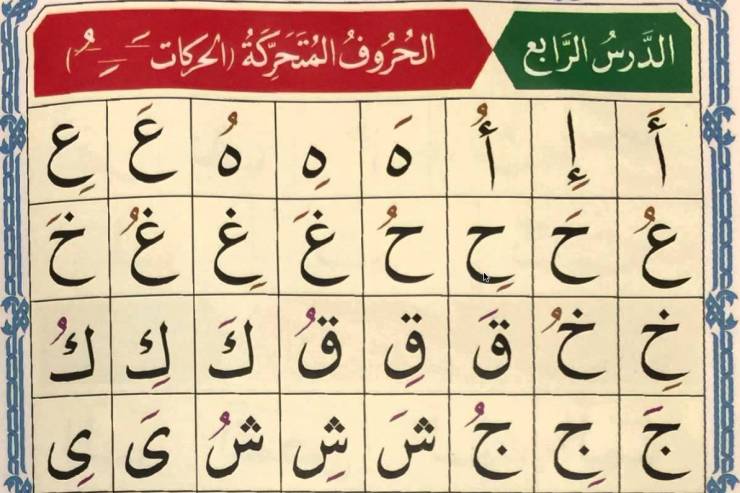 الدَّرسُ الرَّابع
الحُرُوفُ المُتَحَرِّكَةُ (الحركات ـَ ـِ ـُ)
أَ إِ أُ هَ هِ هُ عَ عِ
عُ حَ حِ حُ غَ غِ غُ خَ
خِ خُ قَ قِ قُ كَ كِ كُ
جَ جِ جُ شَ شِ شُ ىَ ىِ